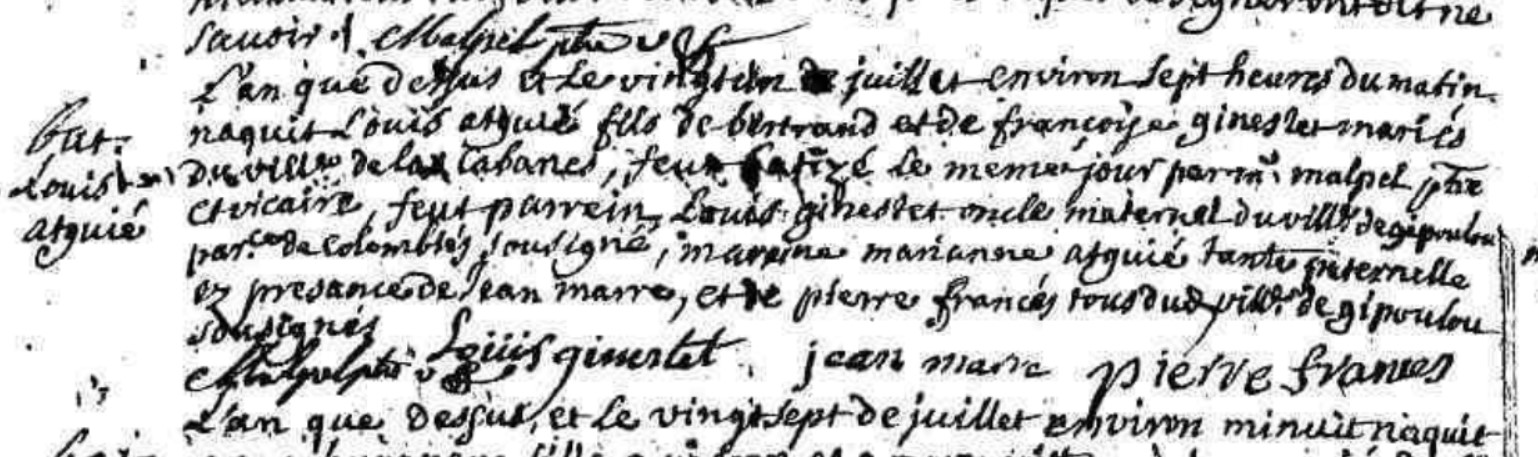 savoir. Malpel ptre v
L'an que dessus et le vingtun de juillet environ sept heures du matin
naquit Louis atguié fils de bertrand et de françoise ginestet mariés
bat.
Louis
atguié
du villa de las Cabanes, feut batizé le meme jour par mr malpel ptre
et vicaire, feut parrein Louis ginestet oncle maternel du villa de gipoulou
par.ce de Colombiés, sousigné, marrine marianne atguié tante paternelle
ez presance de Jean marre, et de pierre francés tous dud villa de gipoulou
sousignés
Malpel ptre v Loüis ginestet jean marre pierre frances
L'an que dessus, et le vingt sept de juillet environ minuit naquit